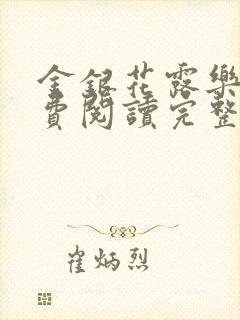 金銀花露樂
費閱讀完整
崔炳烈